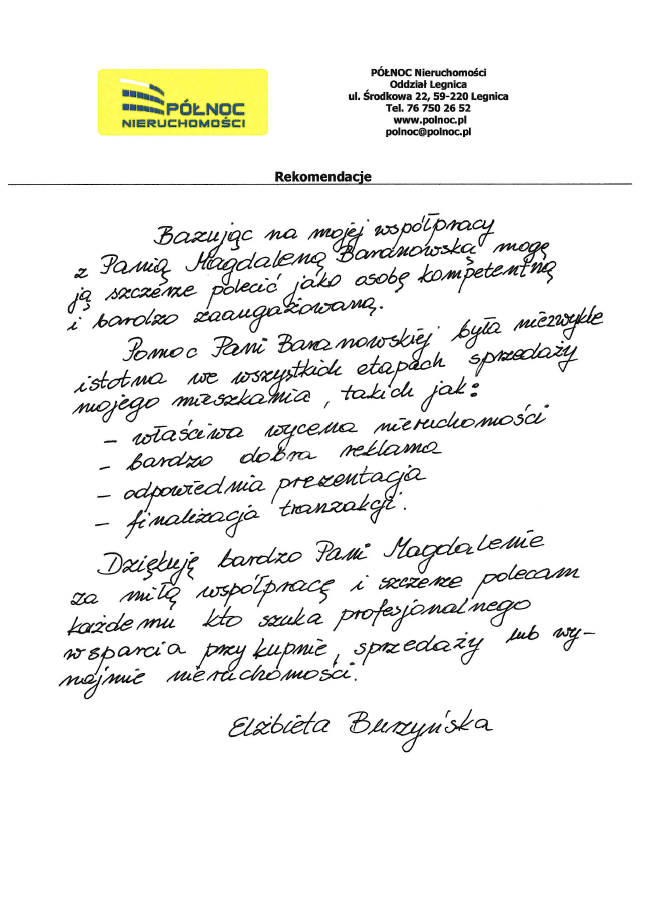 PÓŁNOC
NIERUCHOMOŚCI
PÓŁNOC Nieruchomości
Oddział Legnica
ul. Środkowa 22, 59-220 Legnica
Tel. 76 750 26 52
www.polnoc.pl
polnoc@polnoc.pl
Rekomendacje
Bazując na mojej współpracy
z Panią Magdaleną Baranowską mogę
ją szczerze polecić jako osobę kompetentną
i bardzo zaangażowaną.
Pomoc Pani Baranowskiej była niezwykle
istotna we wszystkich etapach sprzedaży
mojego mieszkania, takich jak:
- właściwa wycena nieruchomości
- bardzo dobra reklama
- odpowiednia prezentacja
- finalizacja tranzakcji.
Dziękuję bardzo Pani Magdalenie
za miłą współpracę i szczerze polecam
każdemu kto szuka profesjonalnego
wsparcia przy kupnie, sprzedaży lub wy-
najmie nieruchomości.
Elżbieta Burzyńska